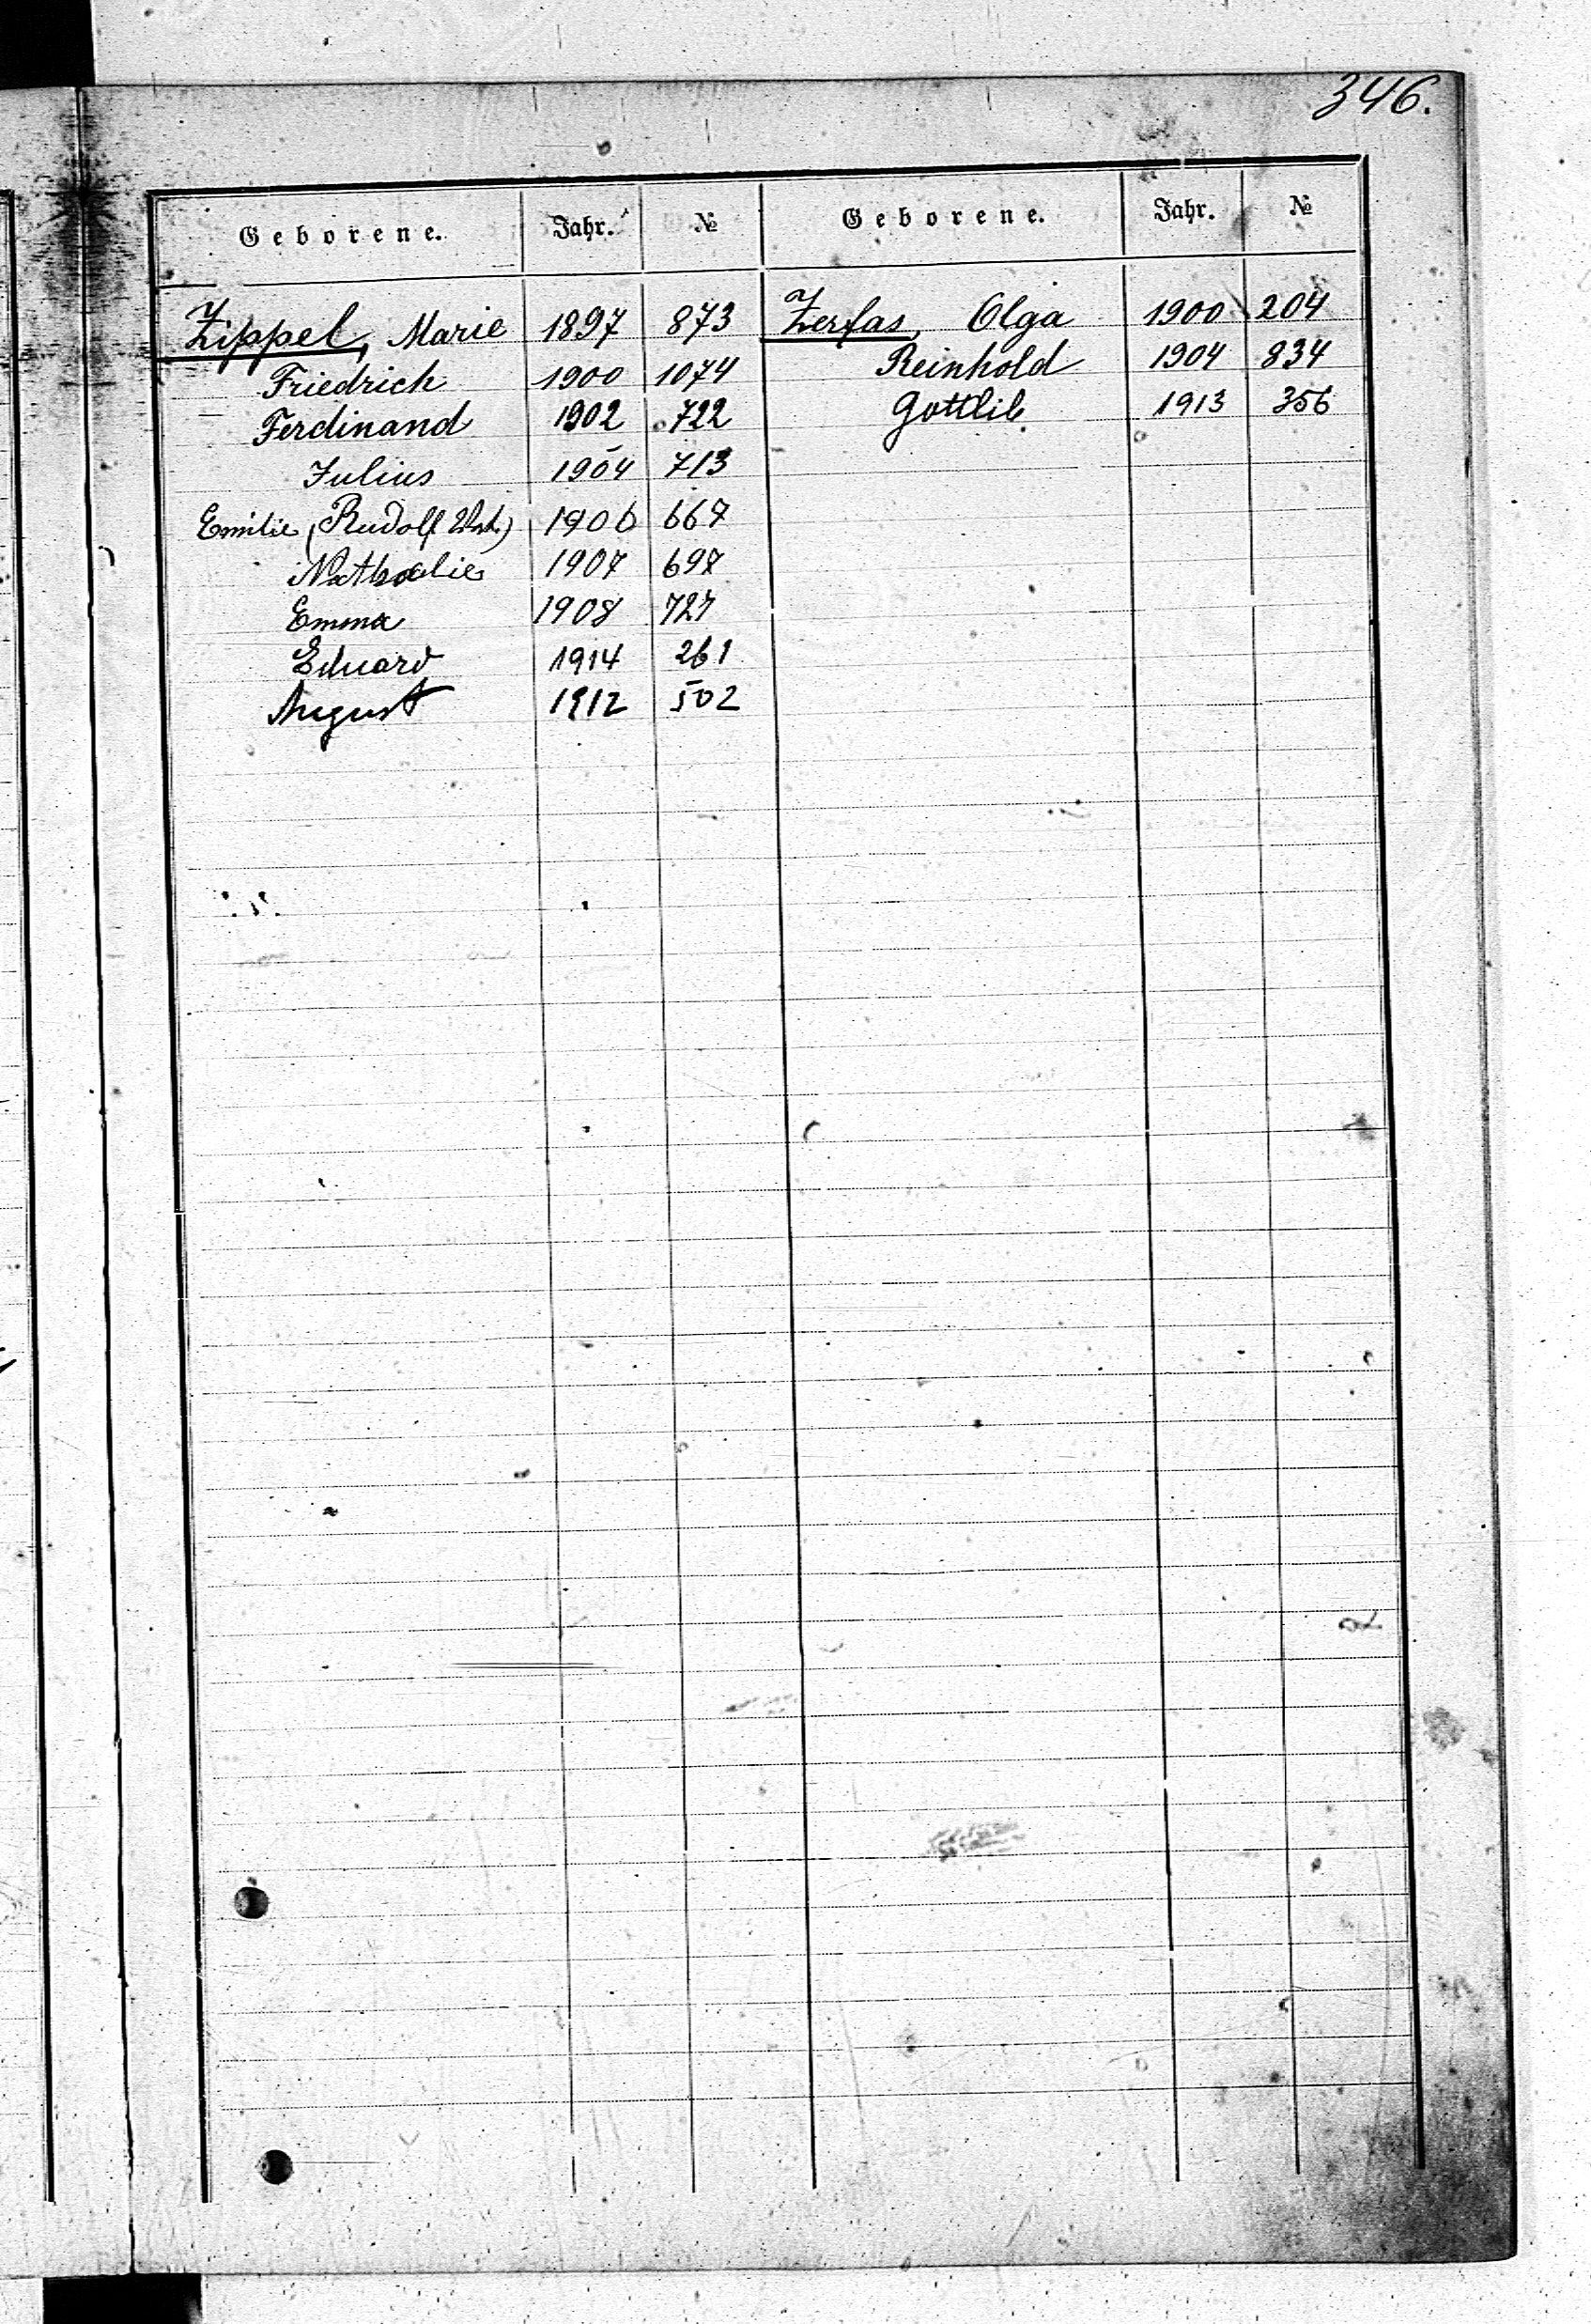 346.
Geborene. Jahr. № Geborene. Jahr. №
Zippel, Marie 1897 873 Zerfas, Olga 1900 204
Friedrich 1900 1074 Reinhold 1904 834
Ferdinand 1902 722 Gottlib 1913 356
Julius 1904 713
Emilie (Rudolf 1906 667
Nathalie 1907 697
Emma 1908 727
Eduard 1914 261
August 1912 502